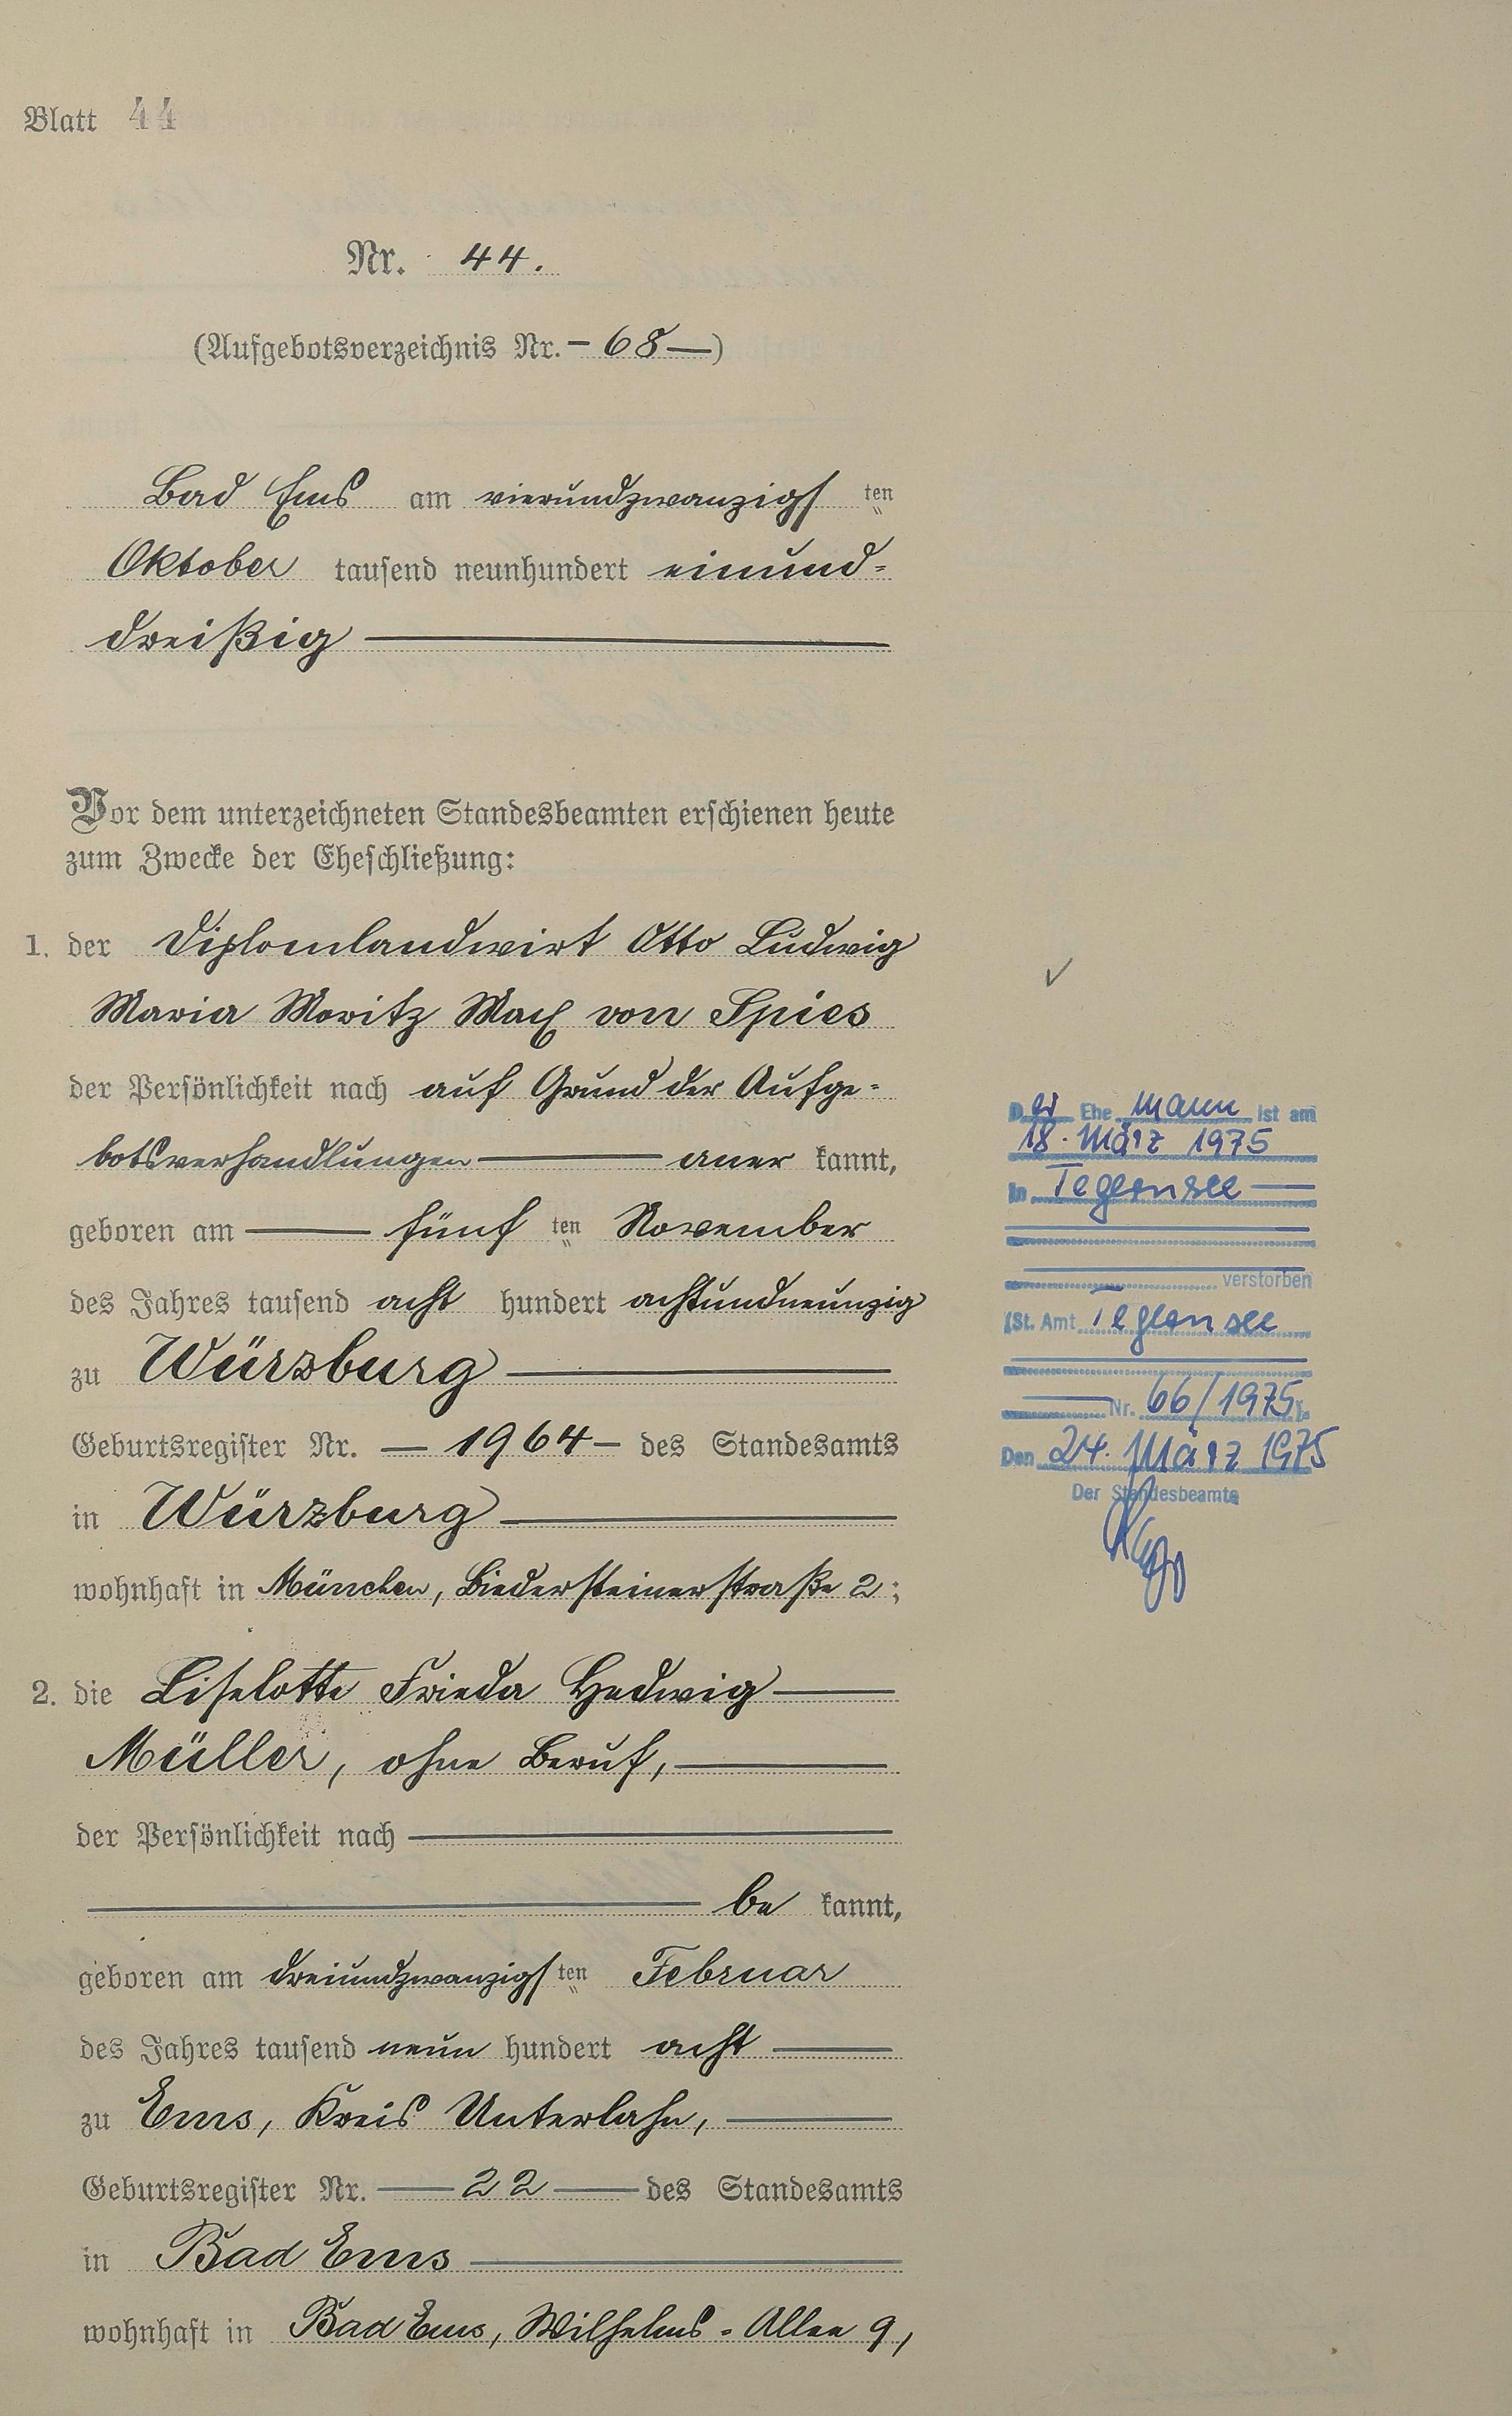 Blatt 44
Nr. 44.
(Aufgebotsverzeichnis Nr. - 68 —)
Bad Ems am vierundzwanzigs ten
Oktober tausend neunhundert einund-
dreißig
Vor dem unterzeichneten Standesbeamten erschienen heute
zum Zwecke der Eheschließung:
1. der Diplomlandwirt Otto Ludwig
Maria Moritz Max von Spies
der Persönlichkeit nach auf Grund der Aufge-
botsverhandlungen — aner kannt,
geboren am — fünf ten November
des Jahres tausend acht hundert achtundneunzig
zu Würzburg
Geburtsregister Nr. — 1964 — des Standesamts
in Würzburg
wohnhaft in München, Biedersteinerstraße 2;
2. die Liselotte Frieda Hedwig
Müller, ohne Beruf,
der Persönlichkeit nach
be kannt,
geboren am dreiundzwanzigs ten Februar
des Jahres tausend neun hundert acht
zu Ems, Kreis Unterlahn,
Geburtsregister Nr. — 22 — des Standesamts
in Bad Ems
wohnhaft in Bad Ems, Wilhelms-Allee 9,
Der Ehe mann ist am
18. März 1975
in Tegernsee
verstorben
(St. Amt Tegernsee
Nr. 66/1975).
Den 24. März 1975
Der Standesbeamte